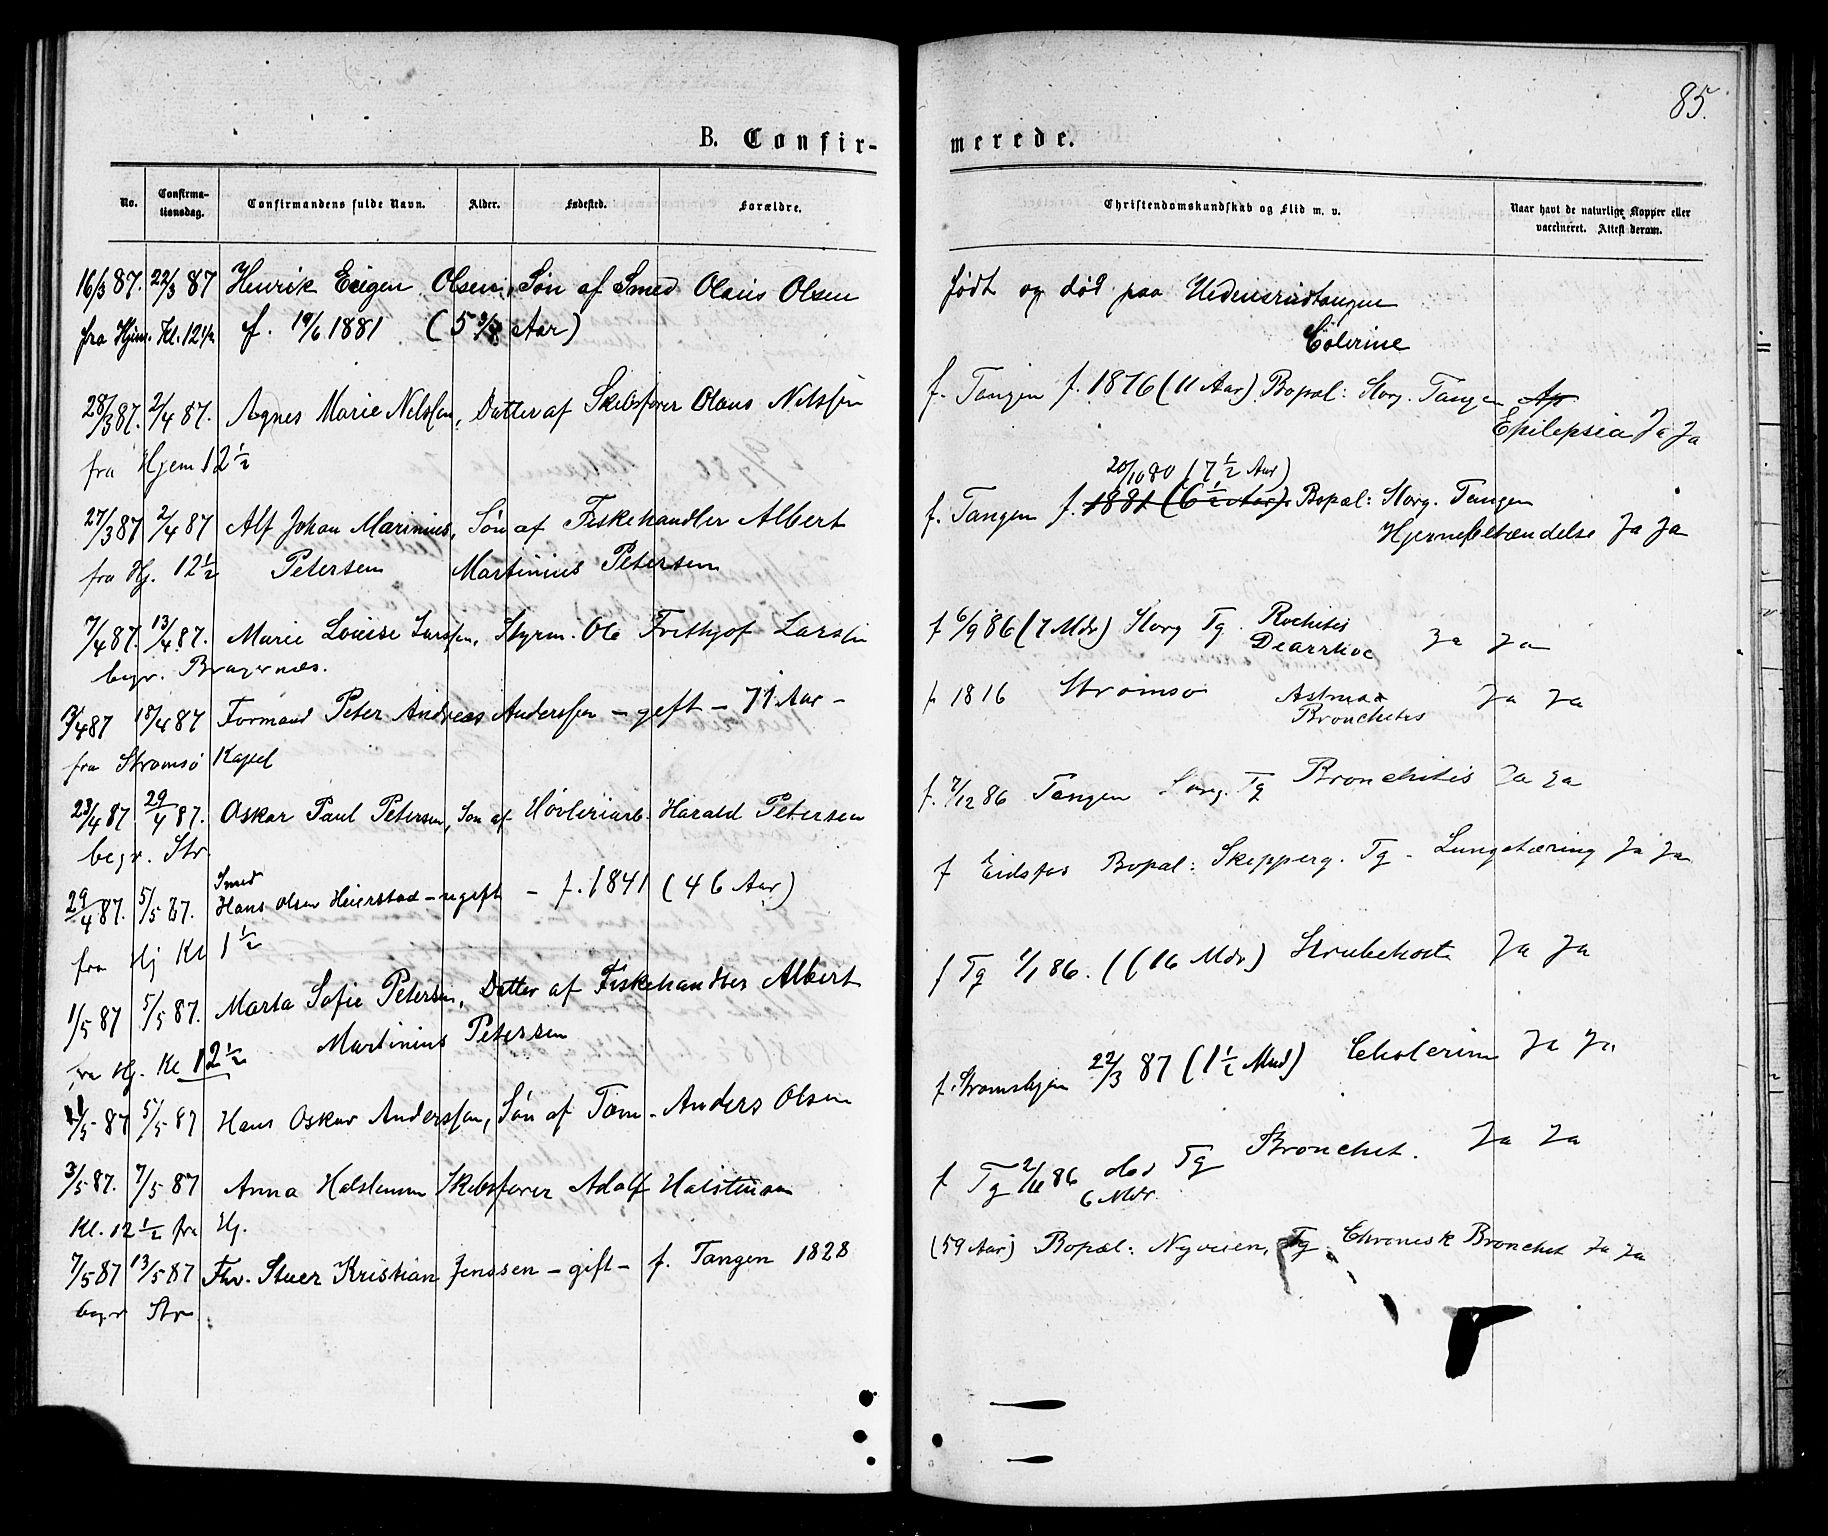 B. Confir-
No.
Confirma-
tionsdag.
Confirmandens fulde Navn.
Alder.
Fødested.
Forældre.
16/3 87. 22/3 87 Henrik Eugen Olsen, Søn af Smed Olaus Olsen
fra Hjem. Kl. 12½ f. 19/6 1881 (5 3/4 Aar)
28/3 87. 2/4 87. Agnes Marie Nilssen, Datter af Skibsfører Olaus Nilssen
fra Hjem 12½
27/3 87 2/4 87 Alf Johan Marinius, Søn af Fiskehandler Albert
fra Hj. 12½ Petersen Martinius Petersen
7/4 87. 13/4 87. Marie Louise Larssen, Styrm. Ole Frithjof Larsen
begr. Bragernæs.
87 15/4 87 Formand Peter Andreas Anderssen – gift – 71 Aar –
fra Strømsø Kapel
23/4 87 29/4 87. Oskar Paul Petersen, Søn af Høvleriarb. Harald Petersen
begr. Str.
Smed
29/4 87. 5/5 87. Hans Olsen – ugift – f. 1841 (46 Aar)
fra Hj Kl 1½
1/5 87 5/5 87. Marta Sofie Petersen, Datter af Fiskehandler Albert
fra Hj. Kl 12½ Martinius Petersen
1/5 87 5/5 87 Hans Oskar Anderssen, Søn af Tøm. Anders Olsen
3/5 87. 7/5 87 Anna Halstensen Skibsfører Adolf Halstensen
Kl. 12½ fra Hj.
7/5 87 13/5 87 Fhv. Stuer Kristian Jenssen – gift – f. Tangen 1828
begr Str
85.
merede.
Christendomskundskab og Flid m. v.
Naar havt de naturlige Kopper eller
vaccineret. Attest derom.
født og død paa
Colerine
f. Tangen f. 1876 (11 Aar) Bopæl: Storg. Tangen Ap
Epilepsia Ja Ja
20/10 80 (7½ Aar)
f. Tangen f. 1881 (6½ Aar). Bopæl: Storg. Tangen
Hjernebetændelse Ja Ja
f 6/9 86 (7 Mdr) Storg Tg. Rachitis
Diarrhoe Ja Ja
f. 1816 Strømsø Astma
Bronchitis Ja Ja
f. 7/12 86 Tangen Storg. Tg Bronchitis Ja Ja
f Eidsfos Bopæl: Skipperg. Tg – Lungetæring Ja Ja
f Tg 1/1 86. ((16 Mdr) Strubehoste Ja Ja
f. 22/3 87 (1½ Mnd) Cholerine Ja Ja
f Tg 2/11 86 død Tg Bronchit. Ja Ja
6 Mdr.
(59 Aar) Bopæl: Nyveien, Tg. Chronisk Bronchit Ja Ja